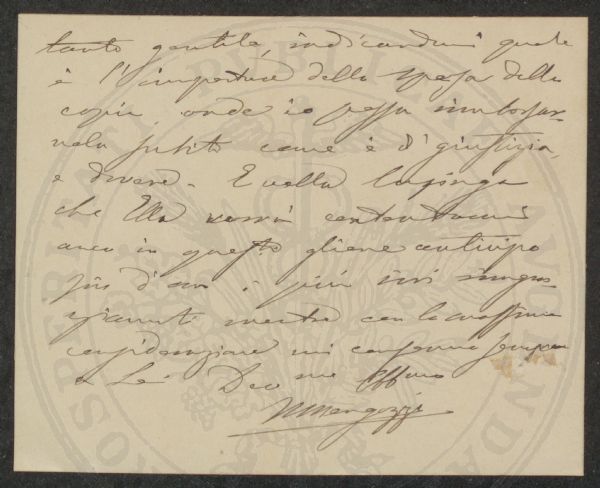 tanto gentile, indicandomi quale
è l'importare della spesa della
copia, onde io possa rimborsar-
nela subito come è di giustizia,
e dovere. E nella lusinga
che Ella vorrà contentarmi
anco in questo gliene anticipo
fin d'ora i più vivi ringra-
ziamenti mentre con la massima
considerazione mi confermo sempre
di Lei Devmo Affmo